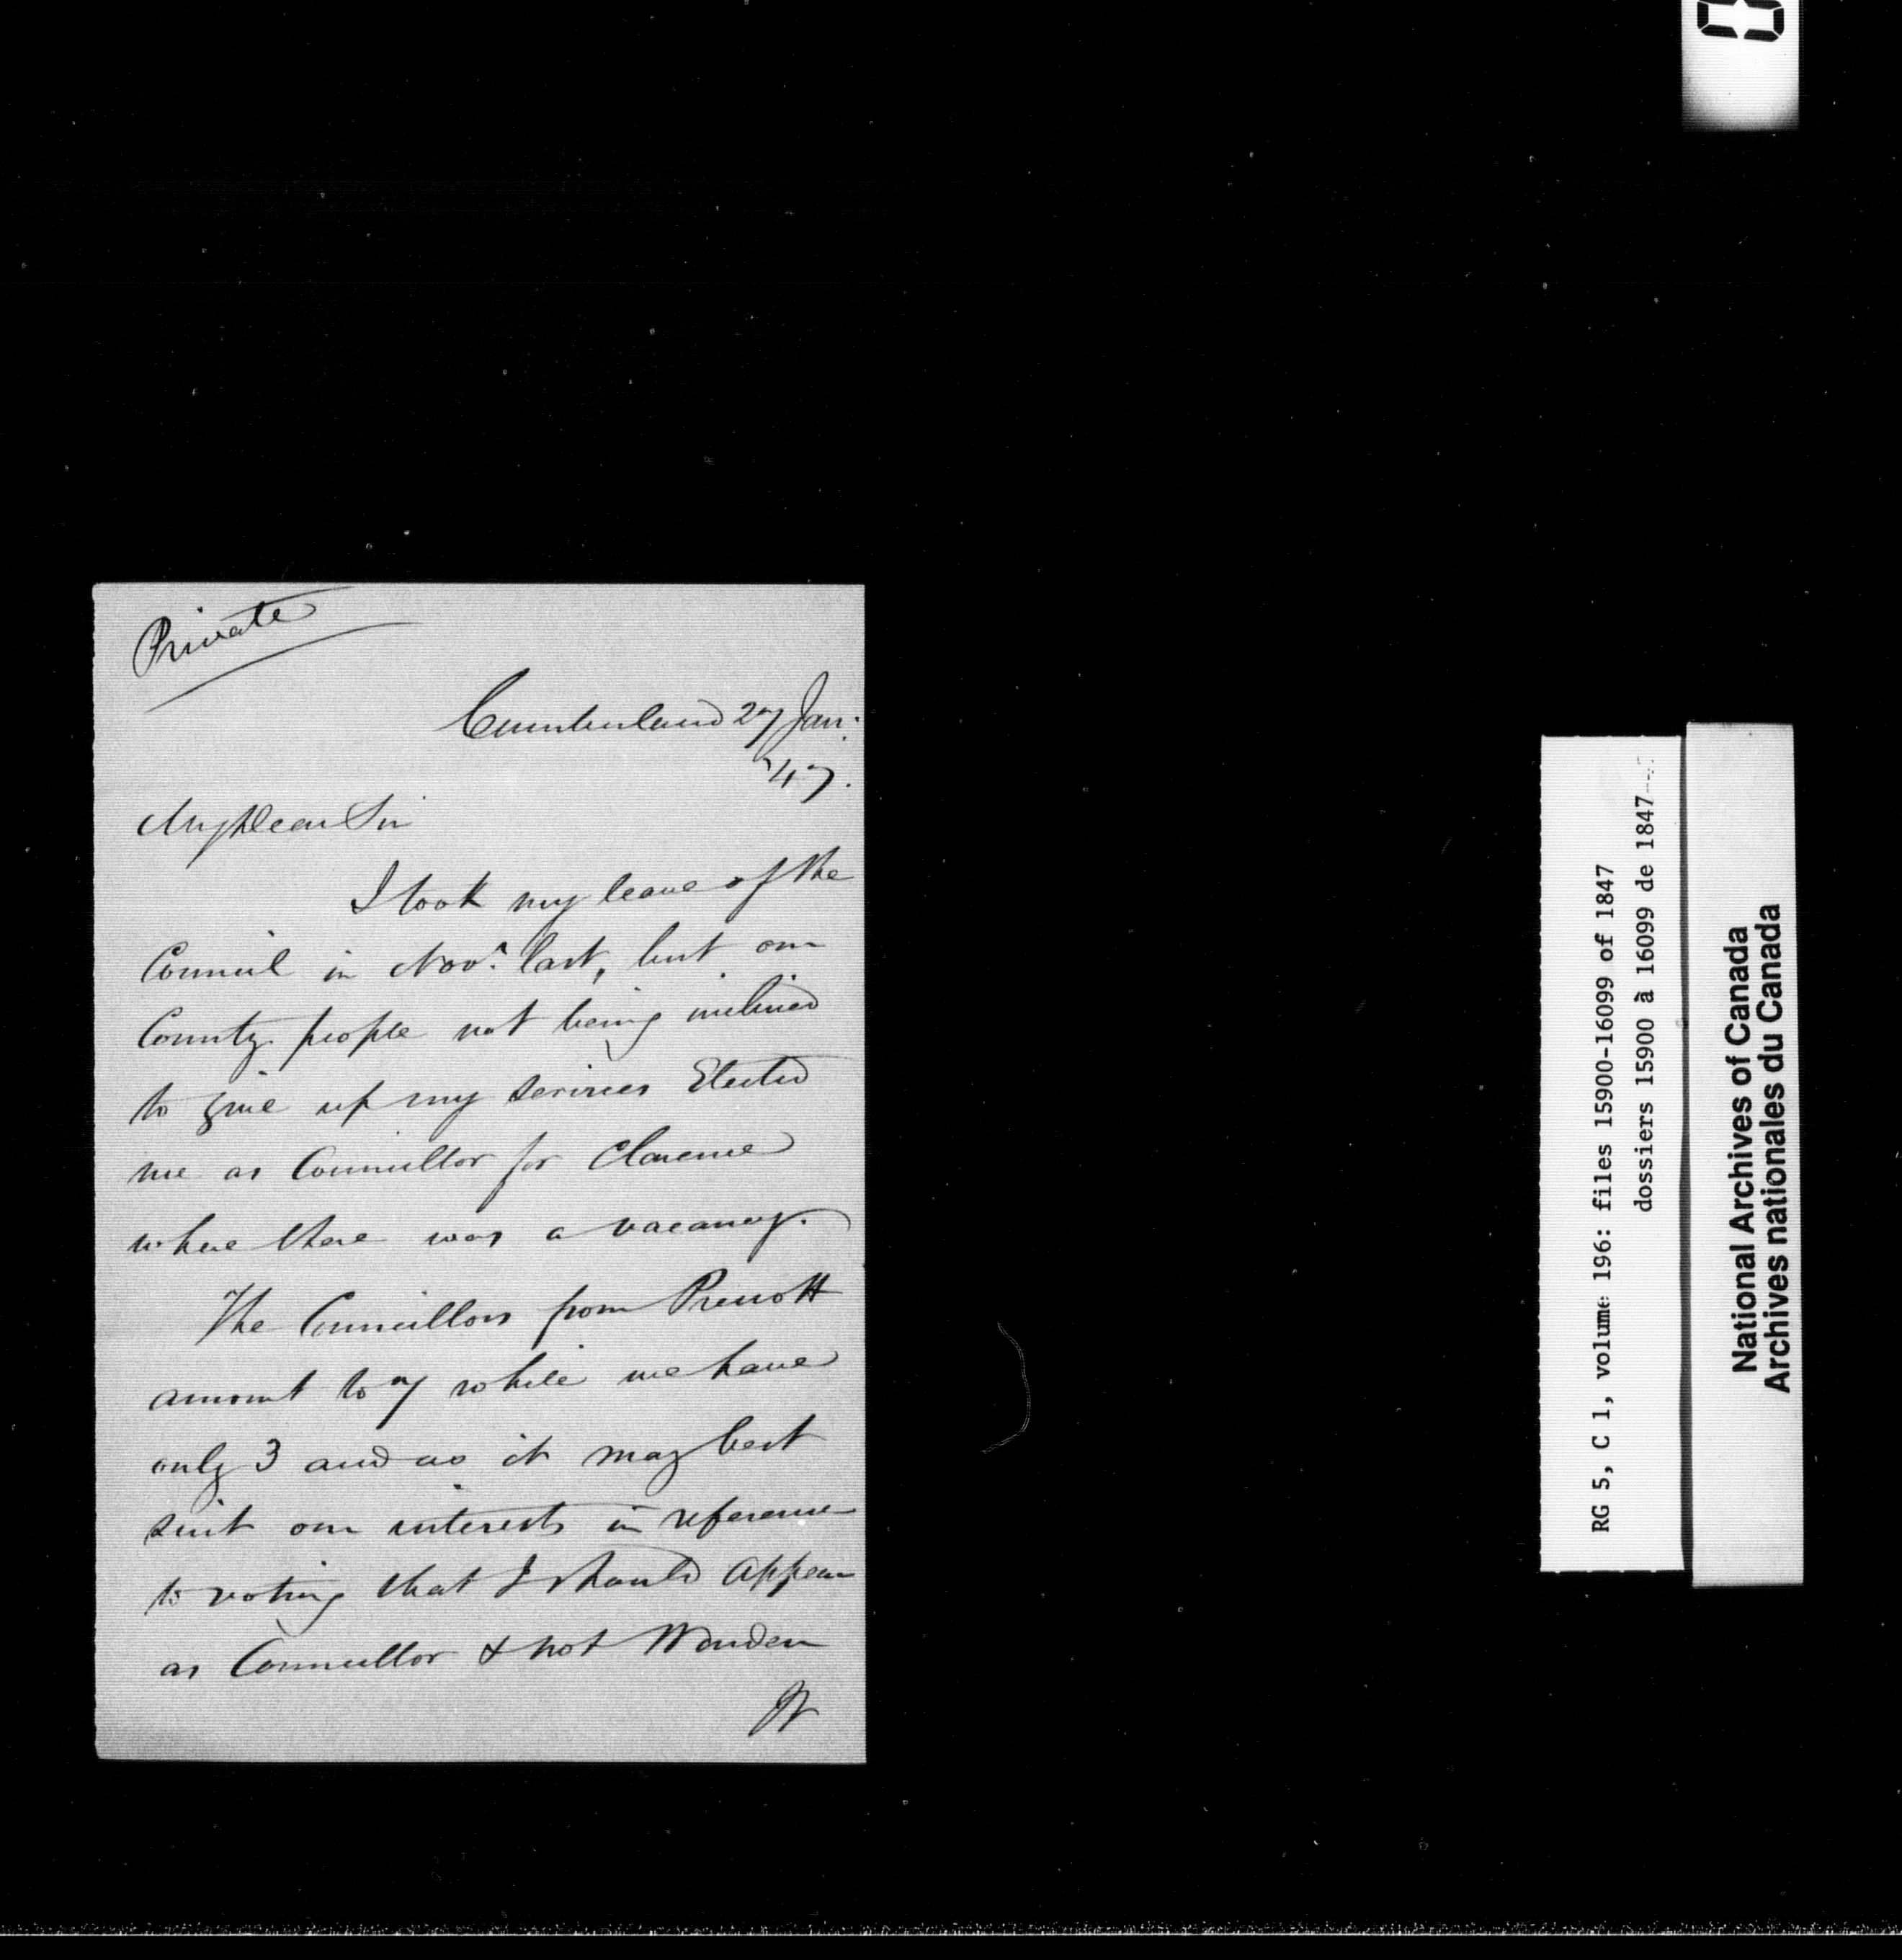 Private
Cumberland 27 Jan:
'47.
My Dear Sir
I took my leave of the
Council in Novr. last, but our
County people not being inclined
to give up my services Elected
me as Councillor for Clarence
where there was a vacancy.
The Councillors from Prescott
amount to 7 while we have
only 3 and as it may best
suit our interests in reference
to voting that I should appear
as Councillor & not Warden
RG 5, C 1, volume 196: files 15900-16099 of 1847
dossiers 15900 à 16099 de 1847
National Archives of Canada
Archives nationales du Canada